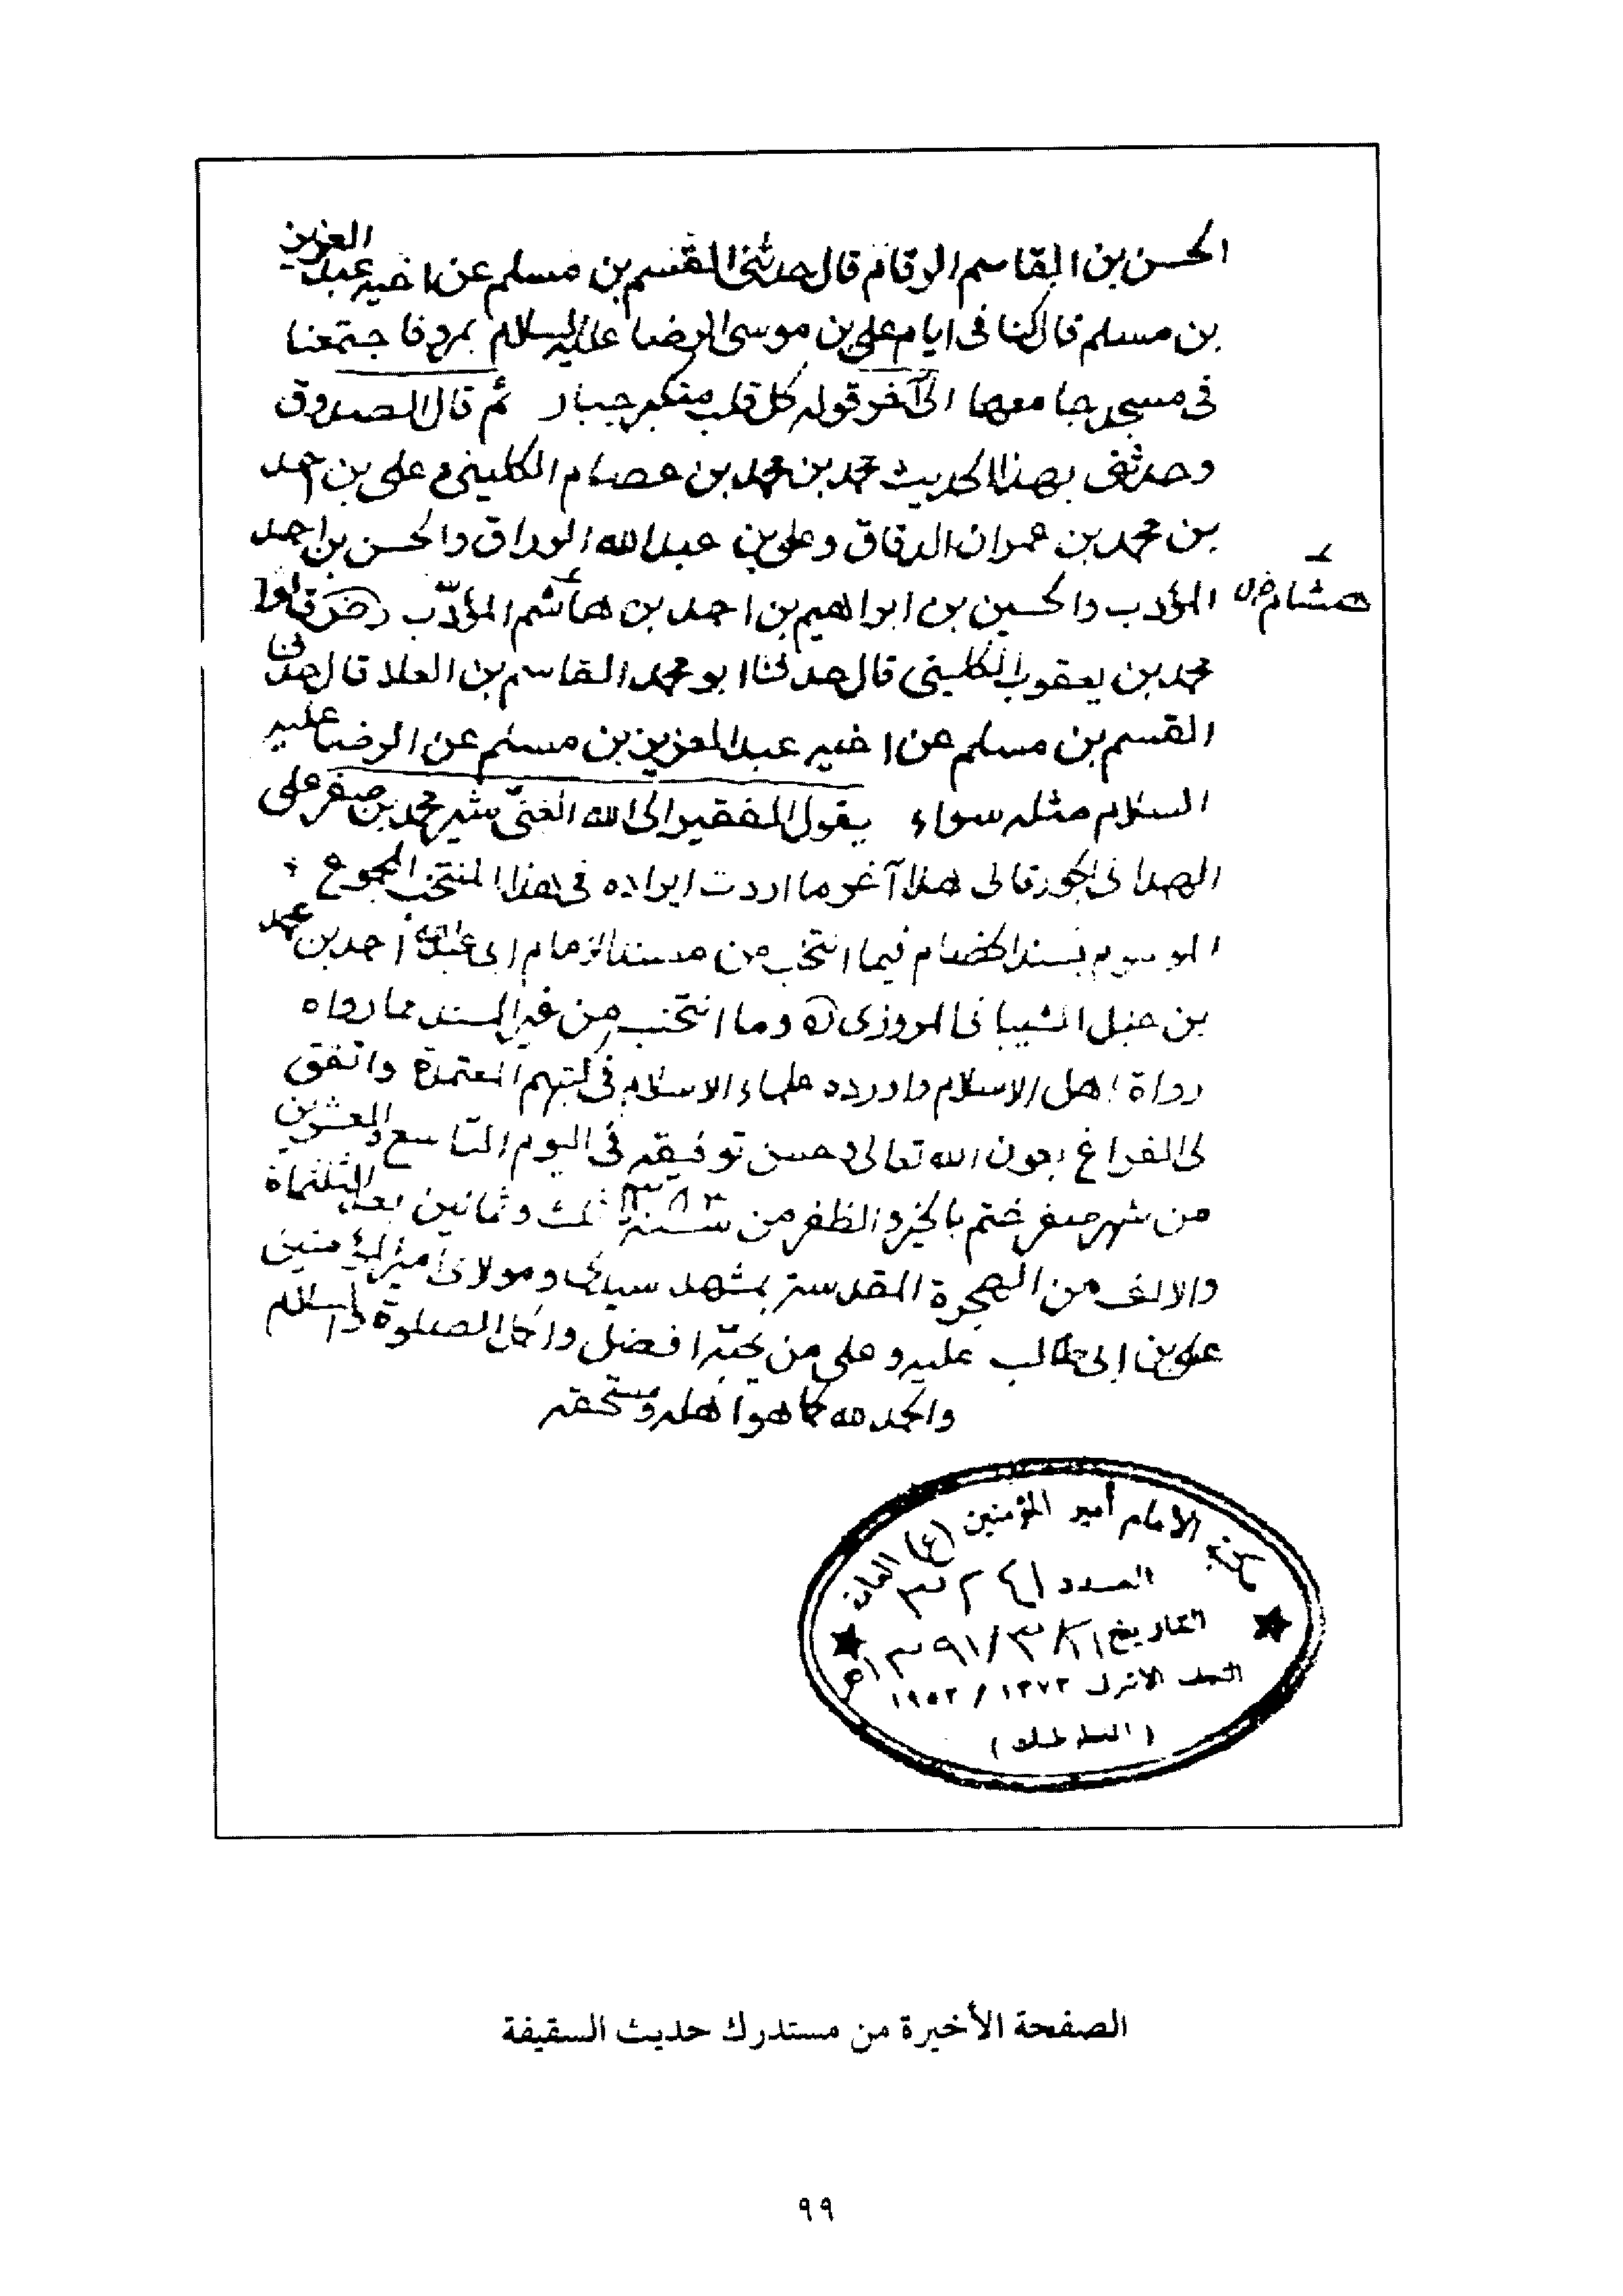 الحسن بن القاسم الرقام قال حدثنى القسم بن مسلم عن اخيه عبد العزيز
بن مسلم قال كنا فى ايام على بن موسى الرضا عليه السلام بمرو فاجتمعنا
فى مسجد جامعها الى آخر قوله كل قلب متكبر جبار ثم قال الصدوق
وحدثنى بهذا الحديث محمد بن محمد بن عصام الكلينى و على بن احمد
بن محمد بن عمران الدقاق وعلى بن عبد الله الوراق والحسن بن احمد
المؤدب والحسين بن ابراهيم بن احمد بن هاشم المؤدّب رض قالوا
هشام
محمد بن يعقوب الكلينى قال حدثنا ابو محمد القاسم بن العلا قال حدثنا
القسم بن مسلم عن اخيه عبد العزيز بن مسلم عن الرضا عليه
السلام مثله سواء يقول المفقير الى الله الغنىّ شير محمد بن صفر على
الهمدانى الجورقانى هذا آخر ما اردت ايراده فى هذا المنتخب المجموع
الموسوم بسند الخصام فيما انتخب من مسند الامام ابى عبد الله احمد بن محمد
بن حنبل الشيبانى المروزى وما انتخب من غير المسند مما رواه
رواة اهل الاسلام واورده علماء الاسلام فى كتبهم المعتمدة واتفق
لى الفراغ بعون الله تعالى وحسن توفيقه فى اليوم التاسع والعشرين
من شهر صفر ختم بالخير والظفر من سنة ١٣٨٣ ثلث وثمانين بعد الثلثمأة
والالف من الهجرة المقدسة بمشهد سيدى و مولاى امير المؤمنين
على بن ابى طالب عليه و على من يحبّه افضل واكمل الصلوة والسلام
والحمد لله كما هو اهله ومستحقه
مكتبة الامام أمير المؤمنين (ع) العامة
العدد ٣٢٤١
التاريخ ١٣٩١/٣/٢١ه
النجف الاشرف ١٣٧٣ / ١٩٥٣
الصفحة الأخيرة من مستدرك حديث السقيفة
٩٩